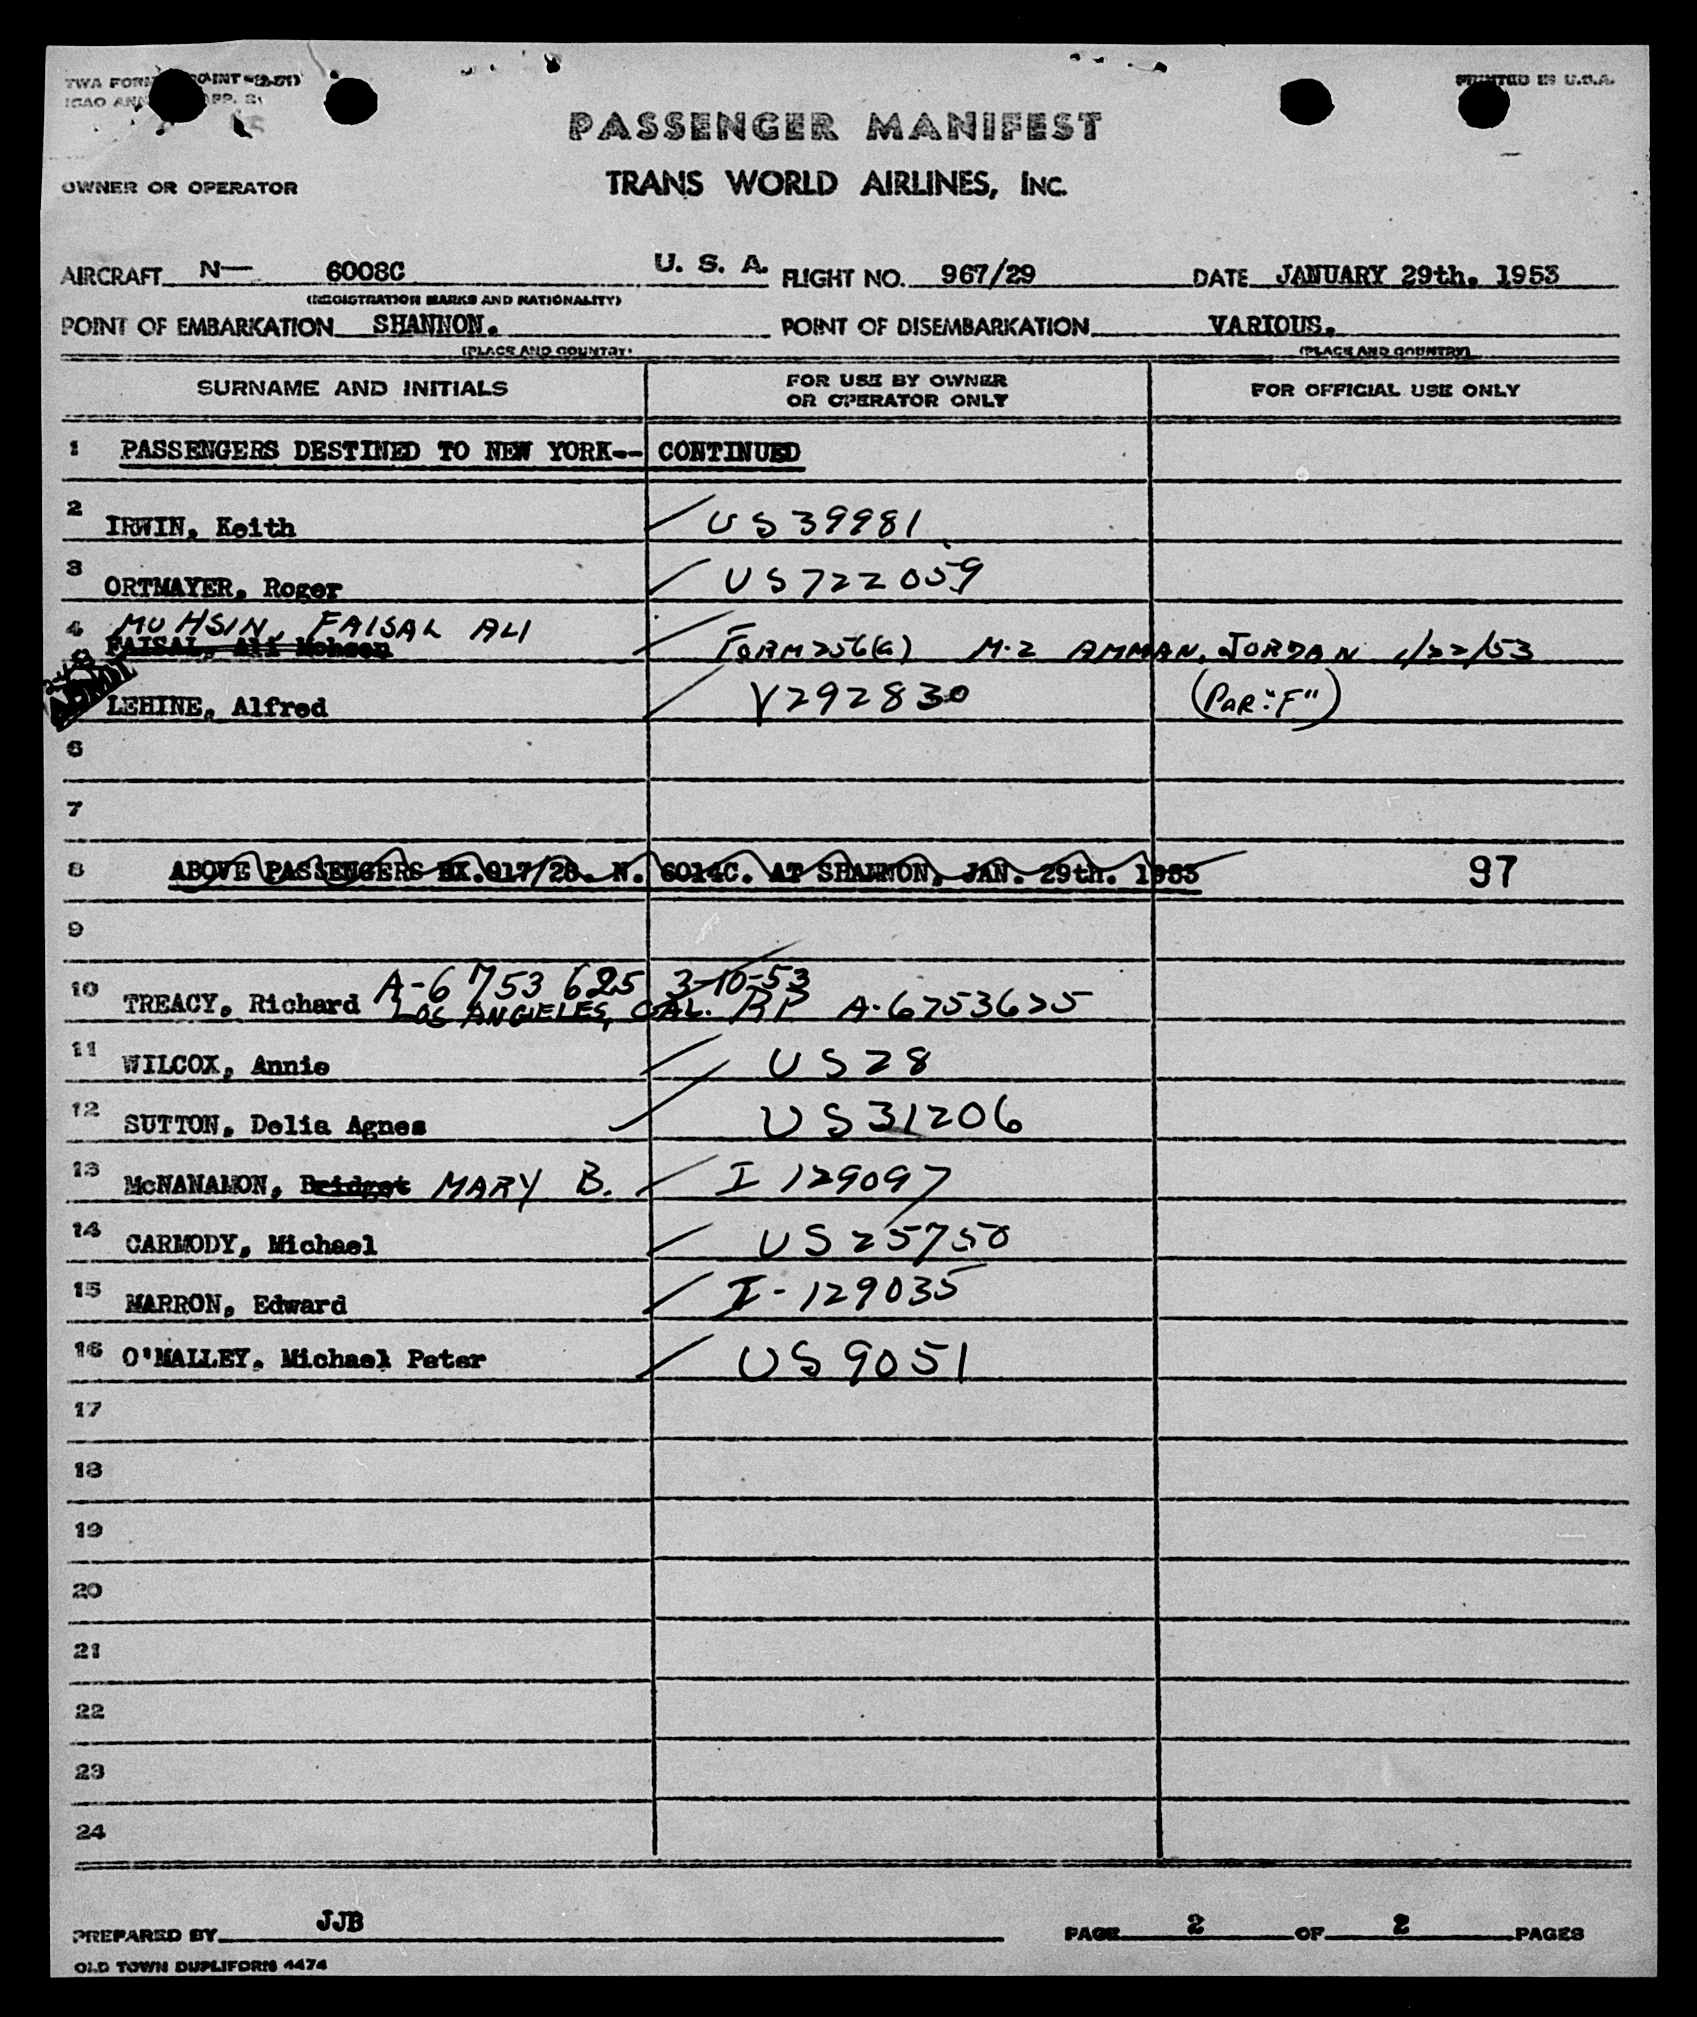 TWA FORM POINT
ICAO ANN APP. 2
PRINTED IN U.S.A.
PASSENGER MANIFEST
OWNER OR OPERATOR TRANS WORLD AIRLINES, INC.
AIRCRAFT N— 6008C U. S. A. FLIGHT NO. 967/29 DATE JANUARY 29th. 1953
(REGISTRATION MARKS AND NATIONALITY)
POINT OF EMBARKATION SHANNON. POINT OF DISEMBARKATION VARIOUS.
(PLACE AND COUNTRY) (PLACE AND COUNTRY)
SURNAME AND INITIALS FOR USE BY OWNER OR OPERATOR ONLY FOR OFFICIAL USE ONLY
1 PASSENGERS DESTINED TO NEW YORK-- CONTINUED
2 IRWIN, Keith US 39981
3 ORTMAYER, Roger US 722059
MUHSIN, FAISAL ALI
4 FAISAL, Ali Mohsen FORM 256(a) M-2 AMMAN, JORDAN 1/22/53
ADMIT
LEHINE, Alfred V292830 (PAR. "F")
6
7
8 ABOVE PASSENGERS EX.917/28. N. 6014C. AT SHANNON, JAN. 29th. 1953 97
9
A-6 753 625 3-10-53
10 TREACY, Richard LOS ANGELES, CAL. RP A-6753625
11 WILCOX, Annie US 28
12 SUTTON, Delia Agnes US 31206
13 McNANAMON, Bridget MARY B. I 129097
14 CARMODY, Michael US 25750
15 MARRON, Edward I-129035
16 O'MALLEY, Michael Peter US 9051
17
18
19
20
21
22
23
24
PREPARED BY JJB PAGE 2 OF 2 PAGES
OLD TOWN DUPLIFORM 4474